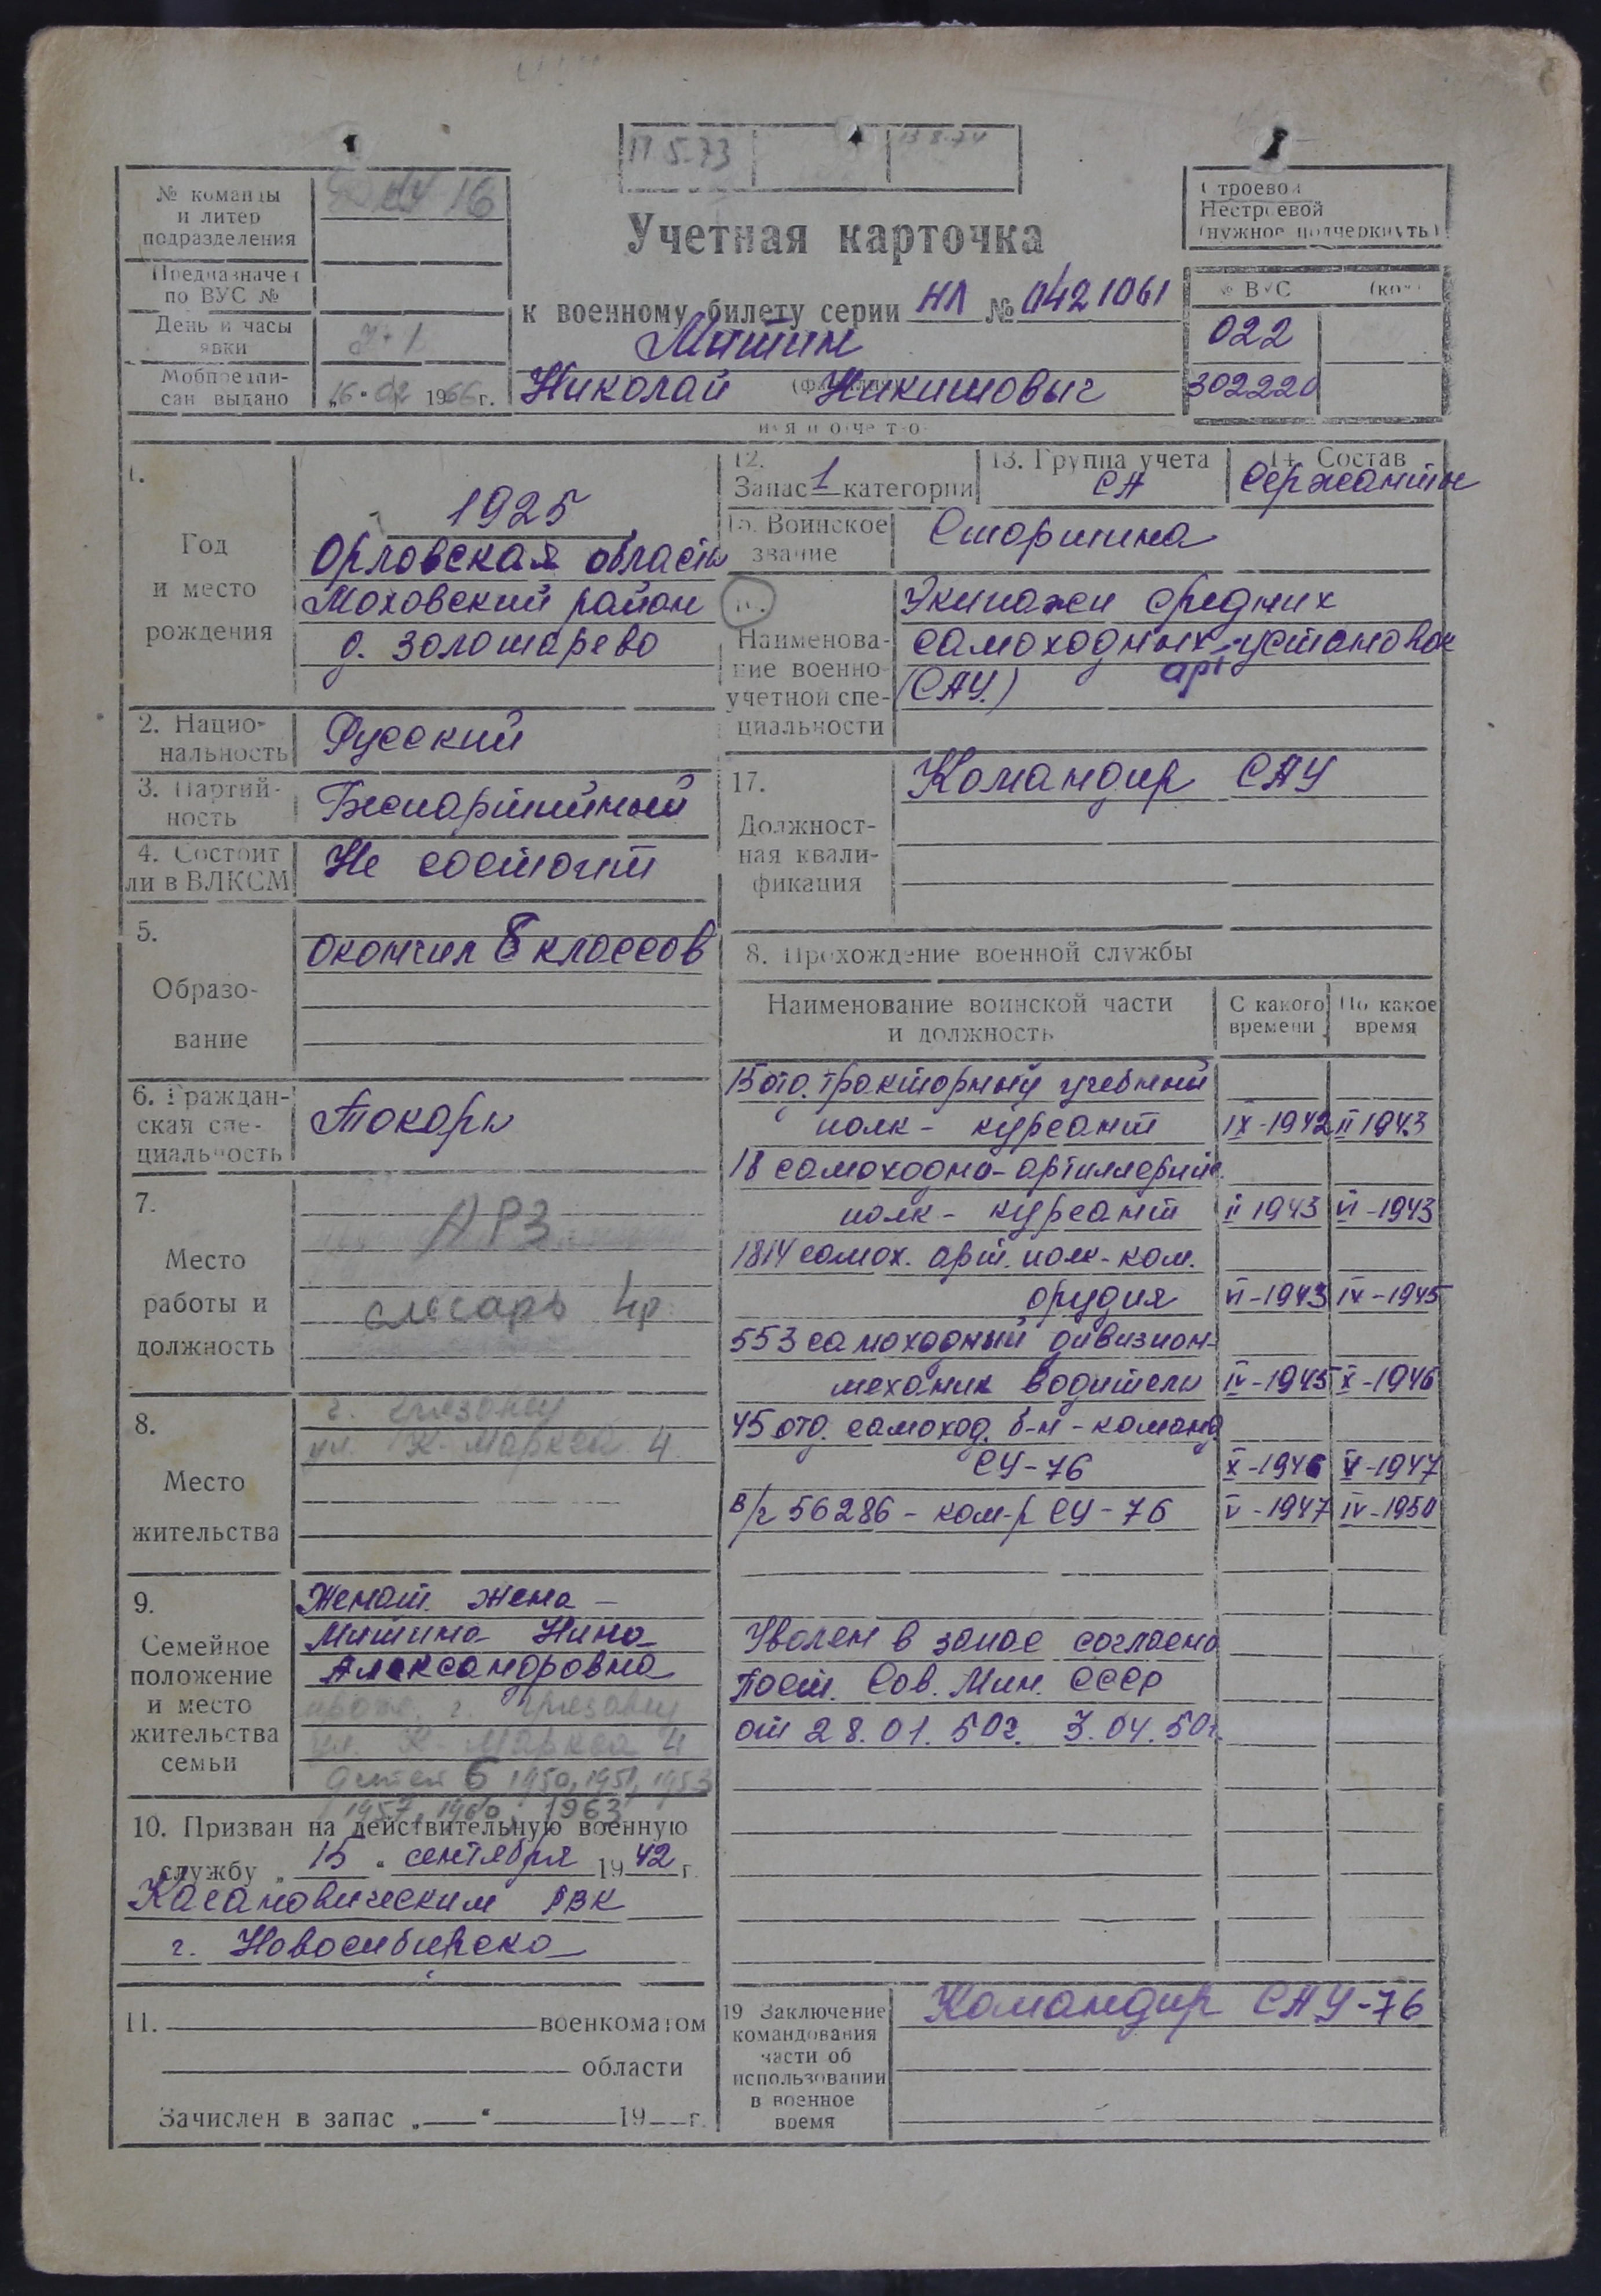 17 5.73
13 8.74
№ команды
и литер
подразделения
16
Предназначен
по ВУС №
День и часы
явки
Мобпредпи-
сан выдано
„16" 02 1966 г.
Строевой
Нестроевой
(нужное подчеркнуть)
Учетная карточка
к военному билету серии НЛ № 0421061
Митин
(фамилия)
Николай Никитовыч
имя и отчество
№ ВУС
022
302220
1.
Год
и место
рождения
1925
Орловская область
Моховский район
д. Золотарево
2. Нацио-
нальность
Русский
3. Партий-
ность
Беспартийный
4. Состоит
ли в ВЛКСМ
Не состоит
5.
Образо-
вание
окончил 8 классов
6. Граждан-
ская спе-
циальность
Токарь
7.
Место
работы и
должность
АРЗ
слесарь 4р.
8.
Место
жительства
г. Грязовец
ул. К. Маркса 4
9.
Семейное
положение
и место
жительства
семьи
Женат. жена –
Митина Нина
Александровна
прож. г. Грязовец
ул. К. Маркса 4
детей 6 1950, 1951, 1953
1957, 1960, 1963
10. Призван на действительную военную
службу „15" сентября 1942 г.
Кагановическим РВК
г. Новосибирска
11. военкоматом
области
Зачислен в запас „ " 19 г.
12.
Запас 1 категории
13. Группа учета
СА
14. Состав
Сержанты
15. Воинское
звание
Старшина
Наименова-
ние военно-
учетной спе-
циальности
Экипажи средних
самоходных установок
арт
(САУ.)
17.
Должност-
ная квали-
фикация
Командир САУ
8. Прохождение военной службы
Наименование воинской части
и должность
С какого
времени
По какое
время
15 отд. тракторный учебный
полк - курсант IX-1942 II 1943
18 самоходно-артиллерийс.
полк - курсант II 1943 VI-1943
1814 самох. арт. полк - ком.
орудия VI-1943 IV-1945
553 самоходный дивизион-
механик водитель IV-1945 X-1946
45 отд. самоход. б-н - команд.
СУ-76 X-1946 V-1947
в/ч 56286 - ком-р СУ-76 V-1947 IV-1950
Уволен в запас согласно
Пост. Сов. Мин. СССР
от 28.01.50г. 3.04.50г.
19 Заключение
командования
части об
использовании
в военное
время
Командир САУ-76